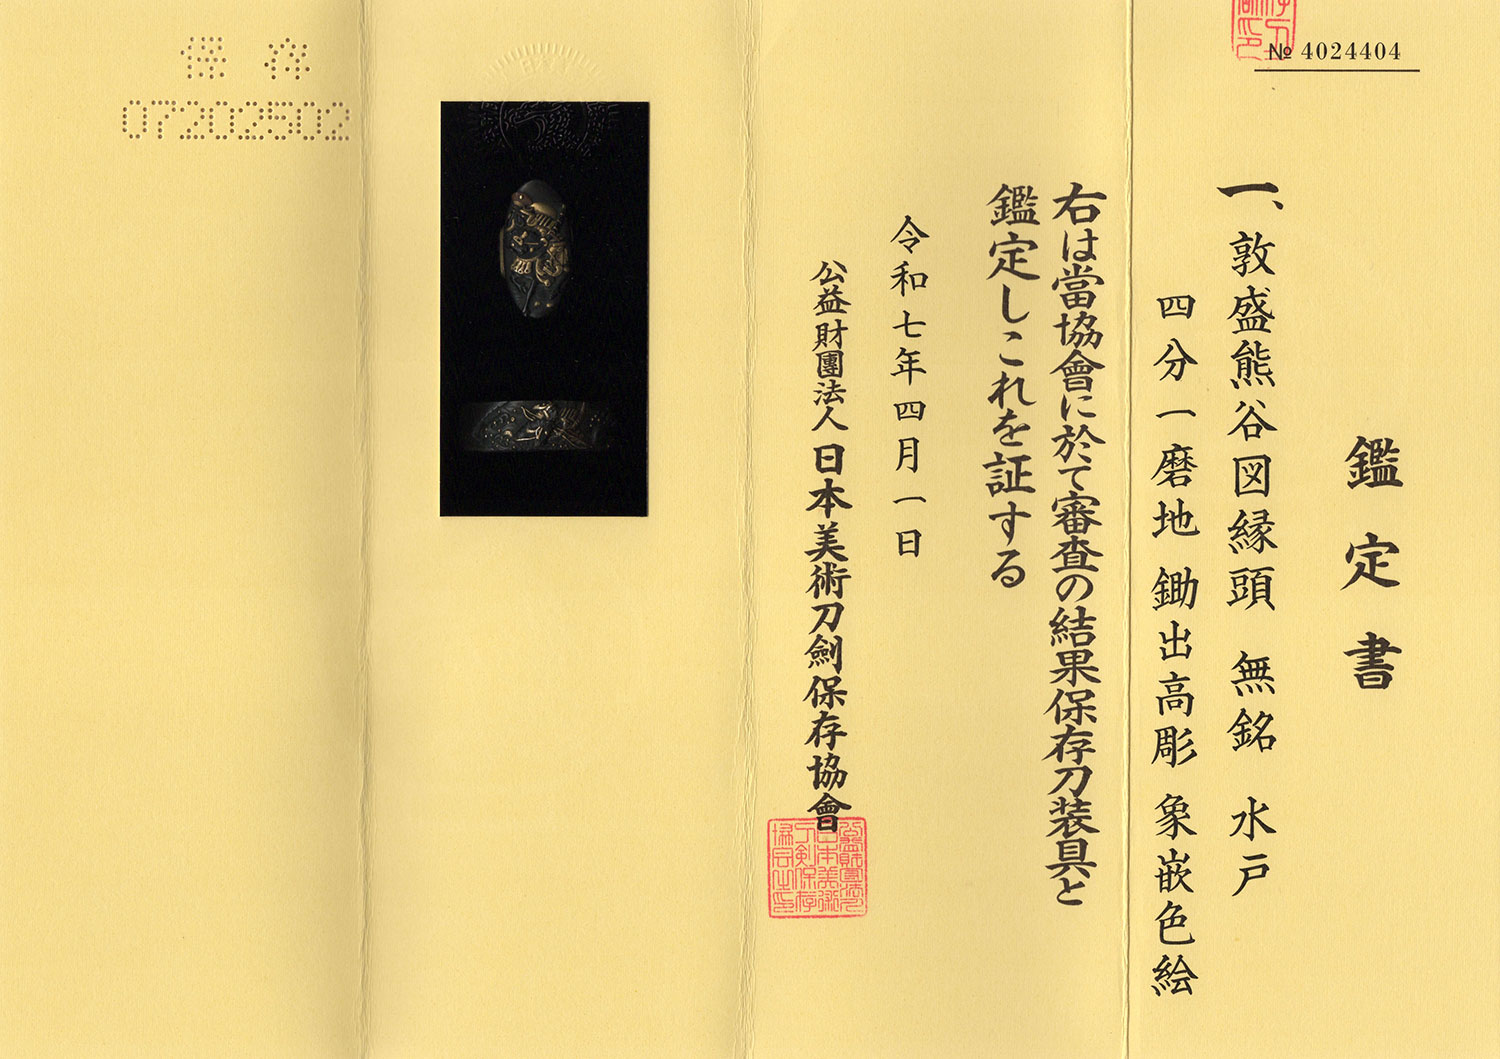 № 4024404
鑑定書
一、敦盛熊谷図縁頭 無銘 水戸
四分一磨地 鋤出高彫 象嵌色絵
右は當協會に於て審査の結果保存刀装具と
鑑定しこれを証する
令和七年四月一日
公益財團法人日本美術刀劍保存協會
保存
07202502